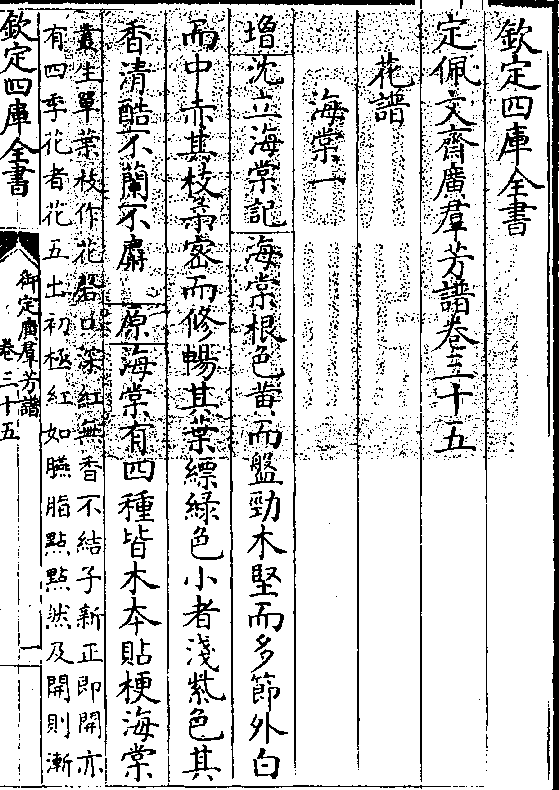 欽定四庫全書
定佩文齋廣羣芳譜卷三十五
花譜
海棠一
增沈立海棠記海棠根色黄而盤勁木堅而多節外白
而中赤其枝柔宻而修暢其葉縹緑色小者淺紫色其
香清酷不蘭不麝 原海棠有四種皆木本貼梗海棠
叢生單葉枝作花磬口深紅無香不結子新正即開亦
有四季花者花五出初極紅如臙脂點點然及開則漸
欽定四庫全書
御定廣羣芳譜
卷三十五
一